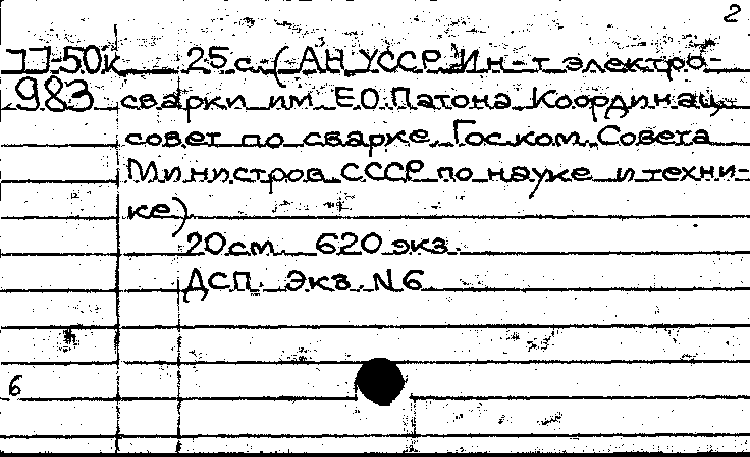 2
П-50к 25 с. (АН УССР. Ин-т электро-
983 сварки им. Е.О. Патона. Координац.
совет по сварке. Гос. ком. Совета
Министров СССР по науке и техни-
ке).
20 см. 620 экз.
ДСП. Экз. N 6
6